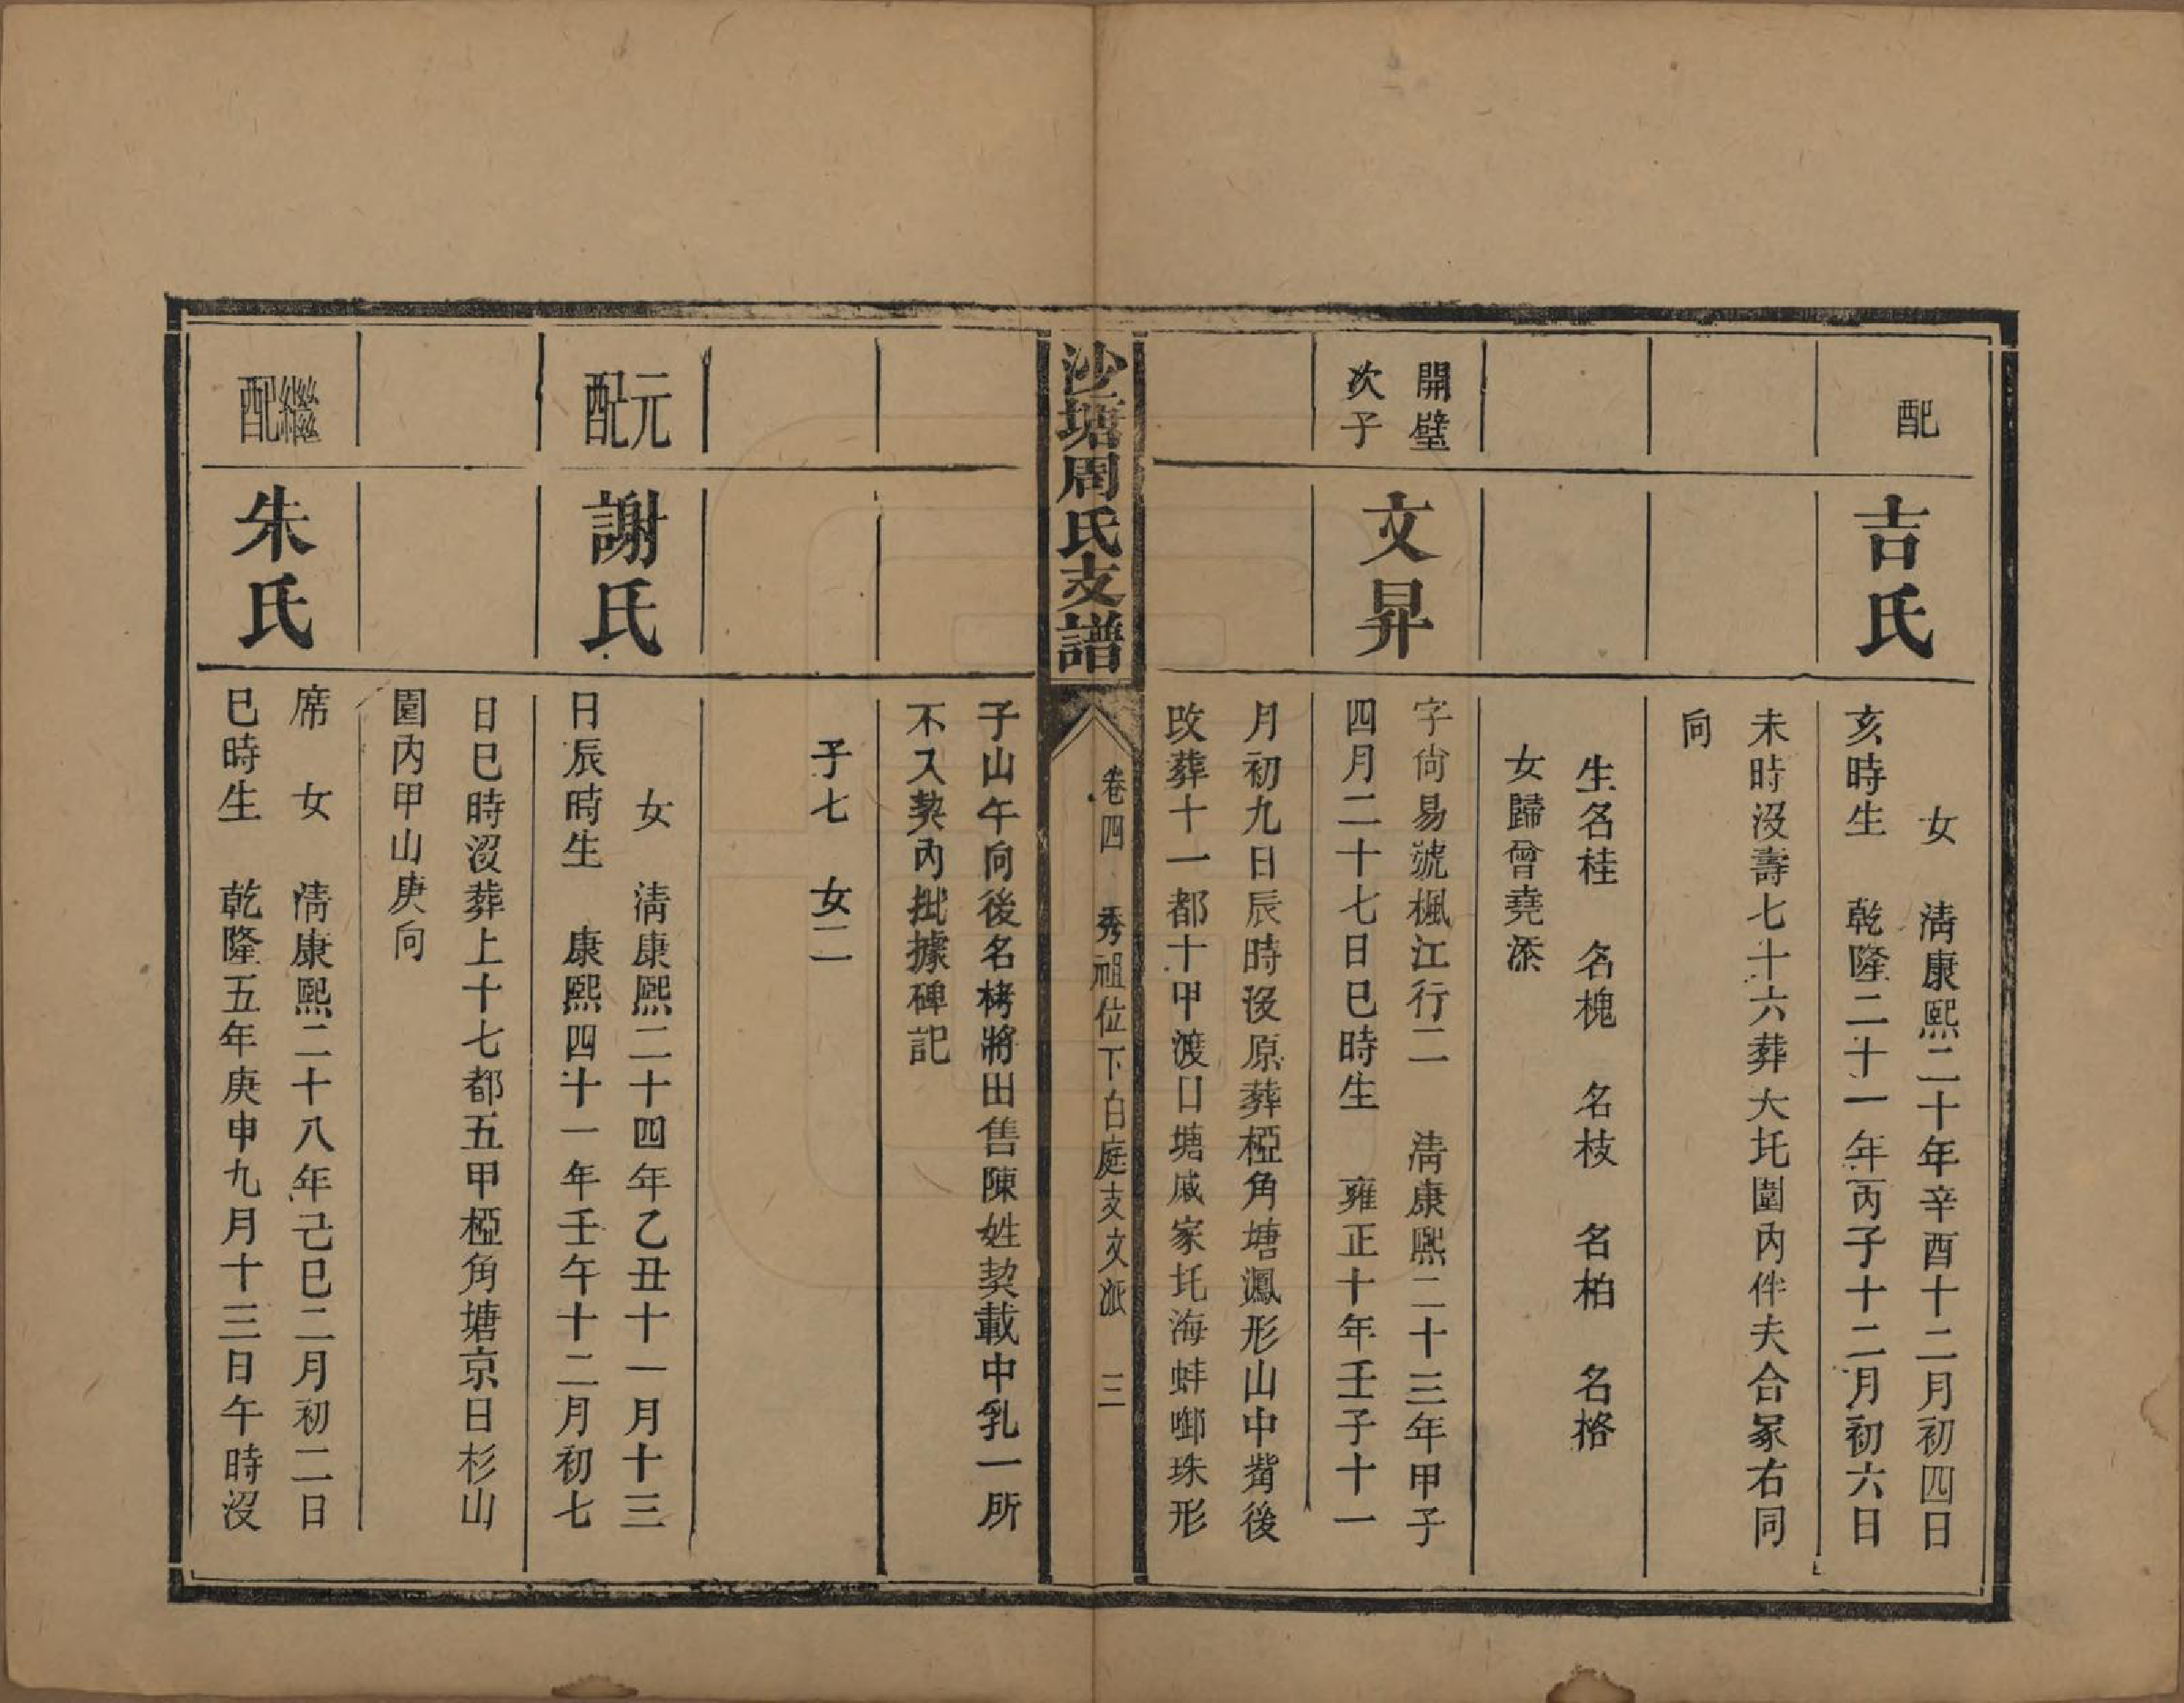 配
吉氏
女　清康熙二十年辛酉十二月初四日
亥時生　乾隆二十一年丙子十二月初六日
未時沒壽七十六葬大圫圍內伴夫合冡右同
向
生名桂　名槐　名枝　名柏　名格
女歸曾堯添
開璧
次子
文昇
字尙易號楓江行二　清康熙二十三年甲子
四月二十七日巳時生　雍正十年壬子十一
月初九日辰時沒原葬椏角塘鳳形山中嘴後
改葬十一都十甲渡口塘戚家圫海蚌啣珠形
沙塘周氏支譜
卷四　秀祖位下白庭支文派　三
子山午向後名栲將田售陳姓契載中乳一所
不入契內批據碑記
子七　女二
元配
謝氏
女　清康熙二十四年乙丑十一月十三
日辰時生　康熙四十一年壬午十二月初七
日巳時沒葬上十七都五甲椏角塘京日杉山
園內甲山庚向
繼配
朱氏
席　女　清康熙二十八年己巳二月初二日
巳時生　乾隆五年庚申九月十三日午時沒